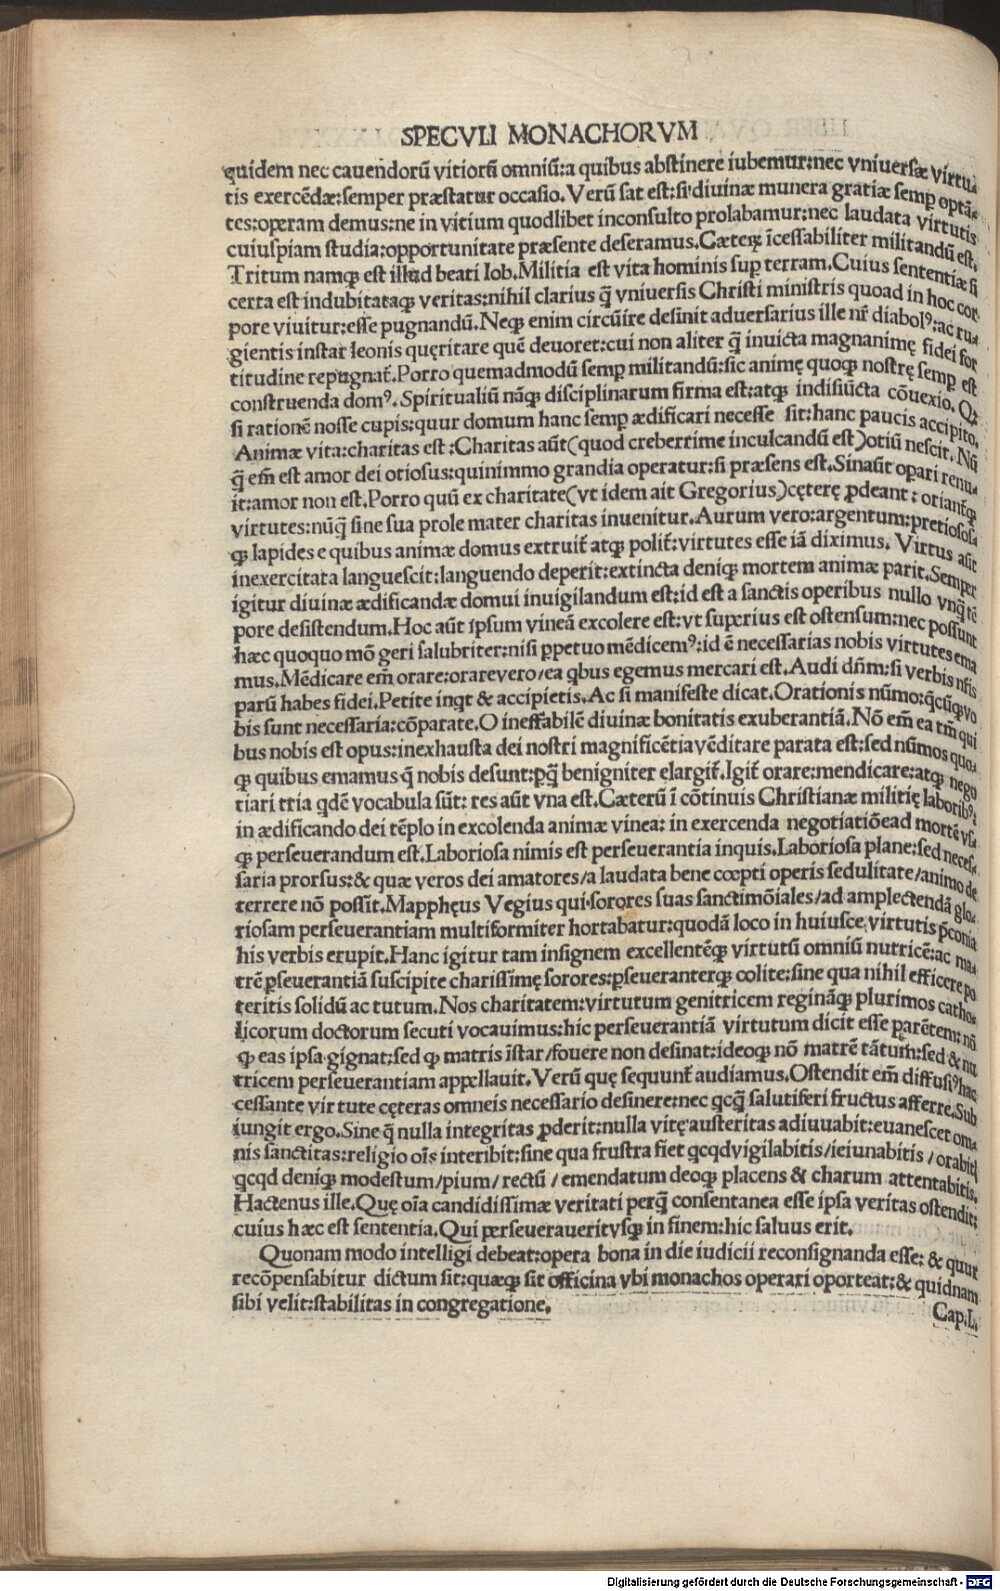 SPECVLI MONACHORVM
quidem nec cauendorũ vitiorũ omniũ:a quibus abstinere iubemur:nec vniuersæ virtu-
tis exercẽdæ:semper præstatur occasio.Verũ sat est:si diuinæ munera gratiæ semꝑ optã-
tes:operam demus:ne in vitium quodlibet inconsulto prolabamur:nec laudata virtutis
cuiuspiam studia:opportunitate præsente deseramus.Cæteꝝ ĩcessabiliter militandũ est.
Tritum namqꝫ est illud beati Iob.Militia est vita hominis suꝑ terram.Cuius sententiæ si
certa est indubitataqꝫ veritas:nihil clarius q̃ vniuersis Christi ministris quoad in hoc cor
pore viuitur:esse pugnandũ.Neqꝫ enim circũire desinit aduersarius ille nr̃ diabolꝰ:ac ru-
gientis instar leonis quęritare quẽ deuoret:cui non aliter q̃ inuicta magnanimę fidei for
titudine repugnat̃.Porro quemadmodũ semꝑ militandũ:sic animę quoqꝫ nostrę semꝑ est
construenda domꝰ.Spiritualiũ nãqꝫ disciplinarum firma est:atqꝫ indisiũcta cõuexio.Q:
si rationẽ nosse cupis:quur domum hanc semꝑ ædificari necesse sit:hanc paucis accipito.
Animæ vita:charitas est:Charitas aũt(quod creberrime inculcandũ est)otiũ nescit.Nũ
q̃ em̃ est amor dei otiosus:quinimmo grandia operatur:si præsens est.Sinaũt oꝑari renu-
it:amor non est.Porro quũ ex charitate(vt idem ait Gregorius)cęterę ꝓdeant:oriant̃qꝫ
virtutes:nũq̃ sine sua prole mater charitas inuenitur.Aurum vero:argentum:pretiososq̃
qꝫ lapides e quibus animæ domus extruit̃ atqꝫ polit̃:virtutes esse iã diximus. Virtus aũt
inexercitata languescit:languendo deperit:extincta deniqꝫ mortem animæ parit.Semper
igitur diuinæ ædificandæ domui inuigilandum est:id est a sanctis operibus nullo vnq̃ tẽ
pore desistendum.Hoc aũt ipsum vineã excolere est:vt superius est ostensum:nec possunt
hæc quoquo mõ geri salubriter:nisi ꝑpetuo mẽdicemꝰ:id ẽ necessarias nobis virtutes ema
mus.Mẽdicare em̃ orare:orarevero/ea qbus egemus mercari est.Audi dñm:si verbis nr̃is
parũ habes fidei.Petite inqt & accipietis.Ac si manifeste dicat.Orationis nũmo:q̃cũqꝫvo
bis sunt necessaria:cõparate.O ineffabilẽ diuinæ bonitatis exuberantiã.Nõ em̃ ea tm̃ qui
bus nobis est opus:inexhausta dei nostri magnificẽtiavẽditare parata est:sed nũmos quo-
qꝫ quibus emamus q̃ nobis desunt:ꝑq̃ benigniter elargit̃.Igit̃ orare:mendicare:atqꝫ nego
tiari tria qdẽ vocabula sũt: res aũt vna est.Cæterũ ĩ cõtinuis Christianæ militię laboribꝰ:
in ædificando dei tẽplo in excolenda animæ vinea: in exercenda negotiatiõead mortẽ vs-
qꝫ perseuerandum est.Laboriosa nimis est perseuerantia inquis.Laboriosa plane:sed neces-
saria prorsus:& quæ veros dei amatores/a laudata bene cœpti operis sedulitate/animo de
terrere nõ possĩt.Mapphęus Vegius qui sorores suas sanctimõiales/ad amplectendã glo-
riosam perseuerantiam multiformiter hortabatur:quodã loco in huiusce virtutis p̃conia
his verbis erupit.Hanc igitur tam insignem excellentẽqꝫ virtutũ omniũ nutricẽ:ac ma-
trẽ ꝑseuerantiã suscipite charissimę sorores:ꝑseueranterqꝫ colite:sine qua nihil efficere po
teritis solidũ ac tutum.Nos charitatem:virtutum genitricem reginãqꝫ plurimos catho-
licorum doctorum secuti vocauimus:hic perseuerantiã virtutum dicit esse parẽtem: nõ
qꝫ eas ipsa gignat:sed qꝫ matris ĩstar/fouere non desinat:ideoqꝫ nõ matrẽ tãtum:sed & nu
tricem perseuerantiam appellauit.Verũ quę sequunt̃ audiamus.Ostendit em̃ diffusiꝰ hac
cessante virtute cęteras omneis necessario desinere:nec qcq̃ salutiferi fructus afferre.Sub
iungit ergo.Sine q̃ nulla integritas ꝓderit:nulla vitę austeritas adiuuabit:euanescet om-
nis sanctitas:religio oĩs interibit:sine qua frustra fiet qcqdvigilabitis/ieiunabitis/orabit̃
qcqd deniqꝫ modestum/pium/rectũ/emendatum deoqꝫ placens & charum attentabitis.
Hactenus ille.Quę oĩa candidissimæ veritati perq̃ consentanea esse ipsa veritas ostendit:
cuius hæc est sententia.Qui perseuerauerit vsqꝫ in finem:hic saluus erit.
Quonam modo intelligi debeat:opera bona in die iudicii reconsignanda esse: & quur
recõpensabitur dictum sit:quæqꝫ sit officina vbi monachos operari oporteat:& quidnam
sibi velit:stabilitas in congregatione.
Cap.L.
Digitalisierung gefördert durch die Deutsche Forschungsgemeinschaft - DFG